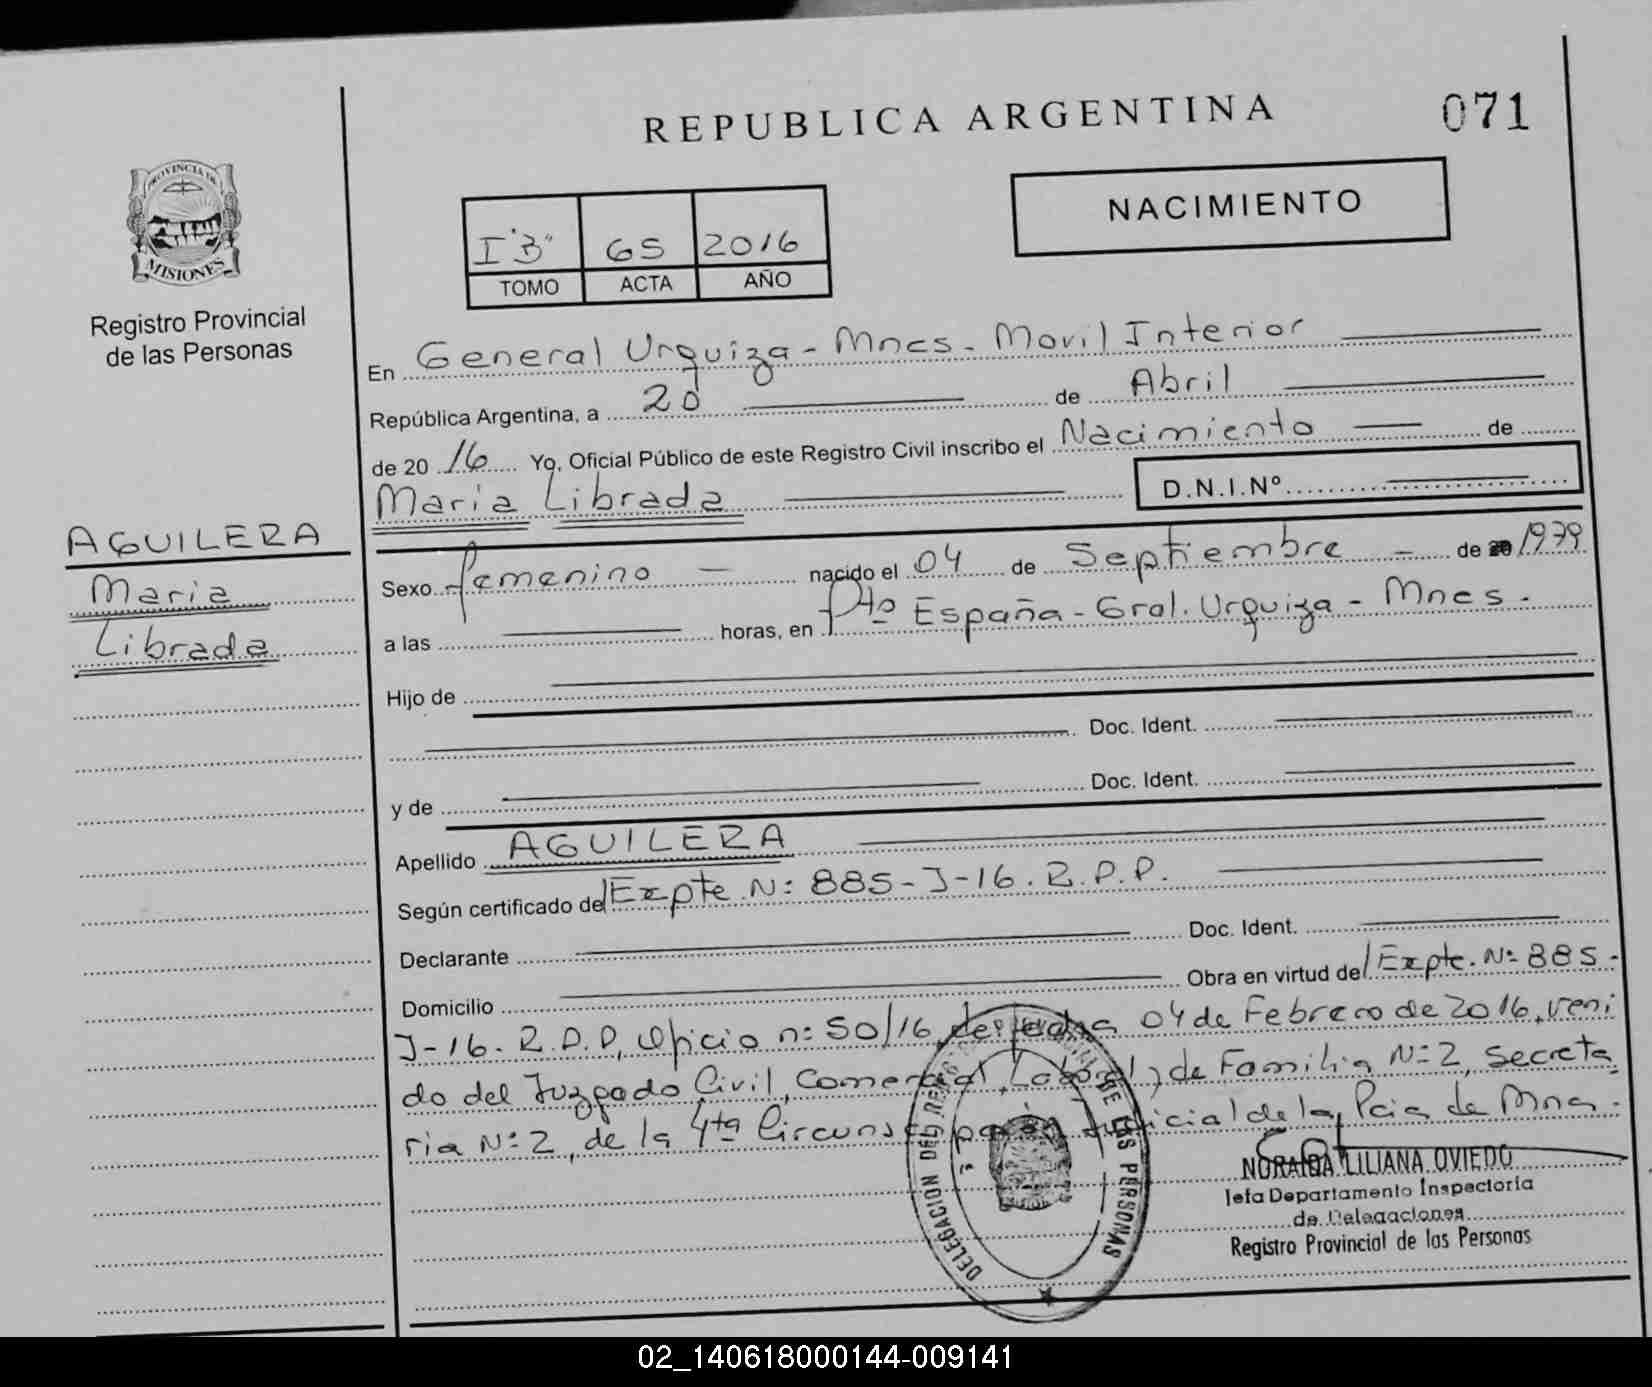 REPUBLICA ARGENTINA
071
PROVINCIA DE
MISIONES
Registro Provincial
de las Personas
NACIMIENTO
I "B" 65 2016
TOMO ACTA AÑO
En General Urquiza - Mnes - Movil Interior
República Argentina, a 20 de Abril
de 2016 Yo, Oficial Público de este Registro Civil inscribo el Nacimiento de
Maria Librada D.N.I.Nº
AGUILERA
Maria
Librada
Sexo femenino nacido el 04 de Septiembre de 1979
a las horas, en Pto España - Gral. Urquiza - Mnes.
Hijo de
Doc. Ident.
y de Doc. Ident.
Apellido AGUILERA
Según certificado del Expte. Nº 885-J-16. R.P.P.
Declarante Doc. Ident.
Domicilio Obra en virtud del Expte. Nº 885-
J-16. R.P.P, Oficio nº 50/16, de fecha 04 de Febrero de 2016, veni
do del Juzgado Civil, Comercial, Laboral y de Familia Nº 2, Secreta
ria Nº 2, de la 4ta Circunscripción Judicial de la Pcia de Mnes.
DELEGACION DEL REGISTRO PROVINCIAL DE LAS PERSONAS
NORAIDA LILIANA OVIEDO
Jefa Departamento Inspectoria
de Delegaciones
Registro Provincial de las Personas
02_140618000144-009141